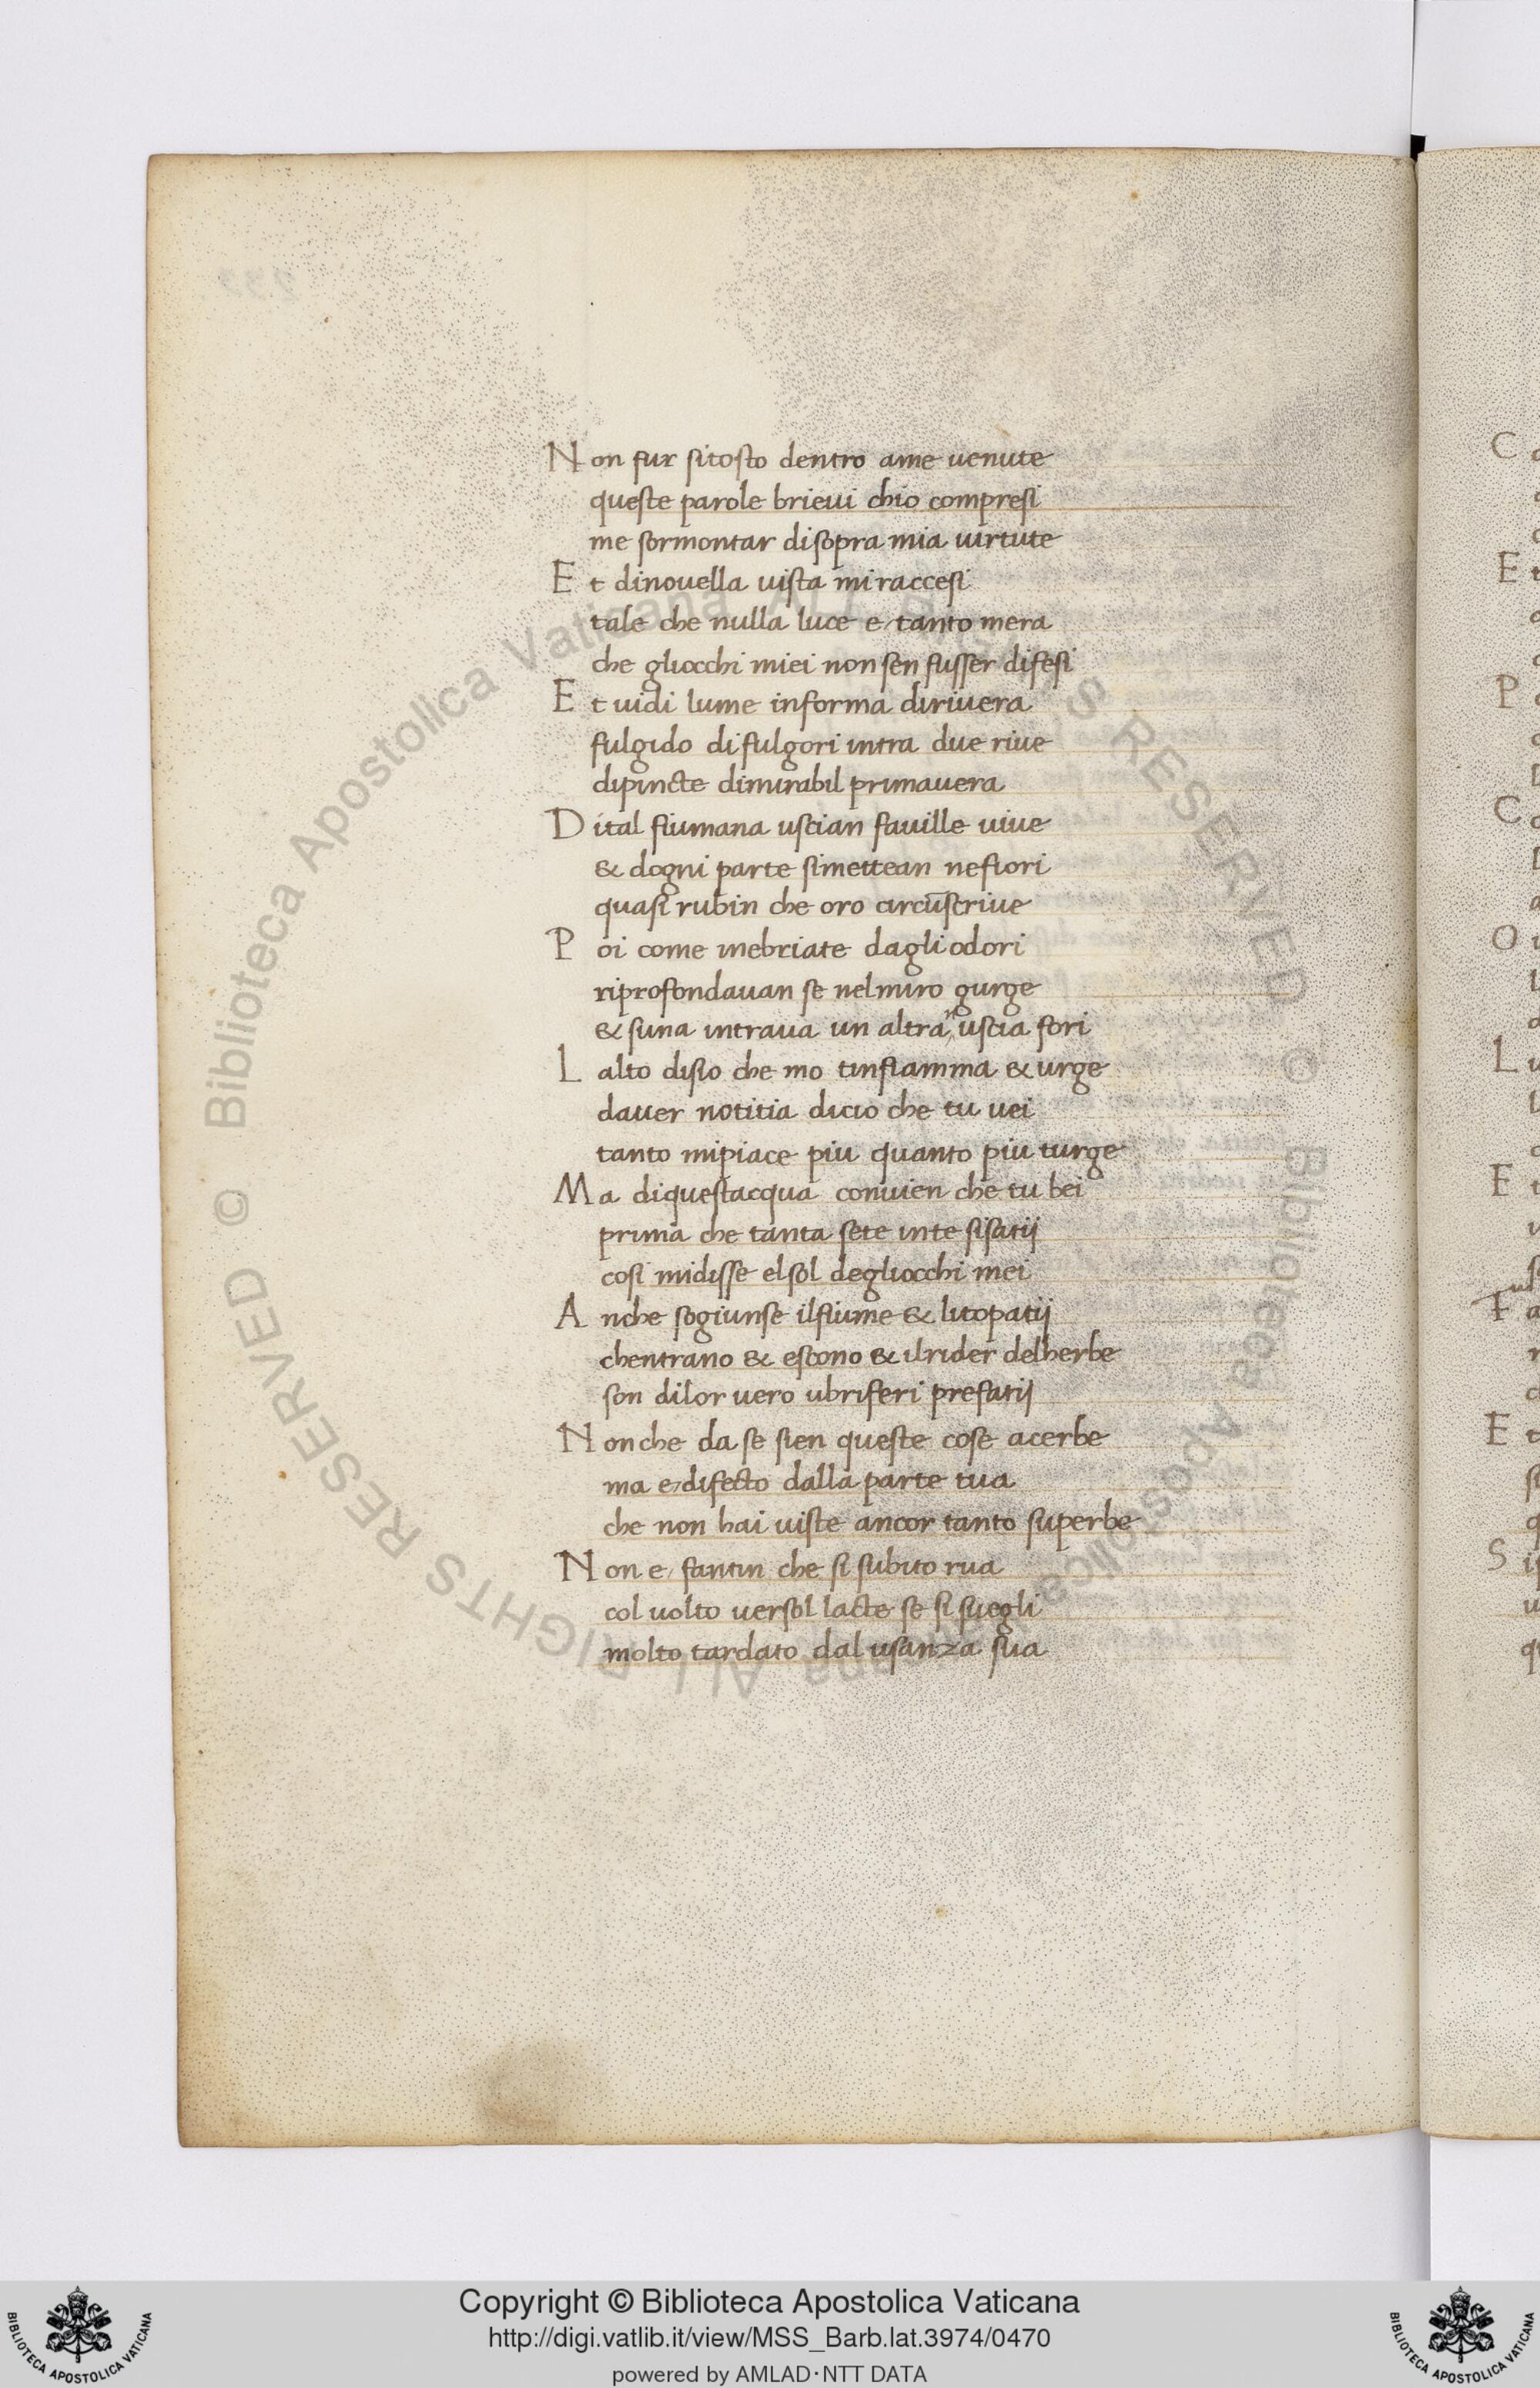 Non fur sitosto dentro ame uenute
queste parole brieui chio compresi
me sormontar disopra mia uirtute
Et dinouella uista miraccesi
tale che nulla luce e tanto mera
che gliocchi miei non sen fusser difesi
Et uidi lume informa dirivera
fulgido di fulgori intra due riue
dipincte dimirabil primauera
Dital fiumana uscian fauille uiue
& dogni parte simettean nefiori
quasi rubin che oro circūscriue
Poi come inebriate dagli odori
riprofondauan se nelmiro gurge
& suna intraua un altra uscia fori
Lalto disio che mo tinfiamma & urge
dauer notitia dicio che tu uei
tanto mipiace piu quanto piu turge
Ma diquestacqua conuien che tu bei
prima che tanta sete inte sisatij
cosi midisse elsol degliocchi mei
Anche sogiunse ilfiume & litopatij
chentrano & escono & ilrider delherbe
son dilor uero ubriferi prefatij
Nonche da se sien queste cose acerbe
ma e difecto dalla parte tua
che non hai uiste ancor tanto superbe
Non e fantin che si subito rua
col uolto uersol lacte se si suegli
molto tardato dal usanza sua
Biblioteca Apostolica Vaticana ALL RIGHTS RESERVED © Biblioteca Apostolica Vaticana ALL RIGHTS RESERVED ©
Copyright © Biblioteca Apostolica Vaticana
http://digi.vatlib.it/view/MSS_Barb.lat.3974/0470
powered by AMLAD·NTT DATA
BIBLIOTECA APOSTOLICA VATICANA
BIBLIOTECA APOSTOLICA VATICANA